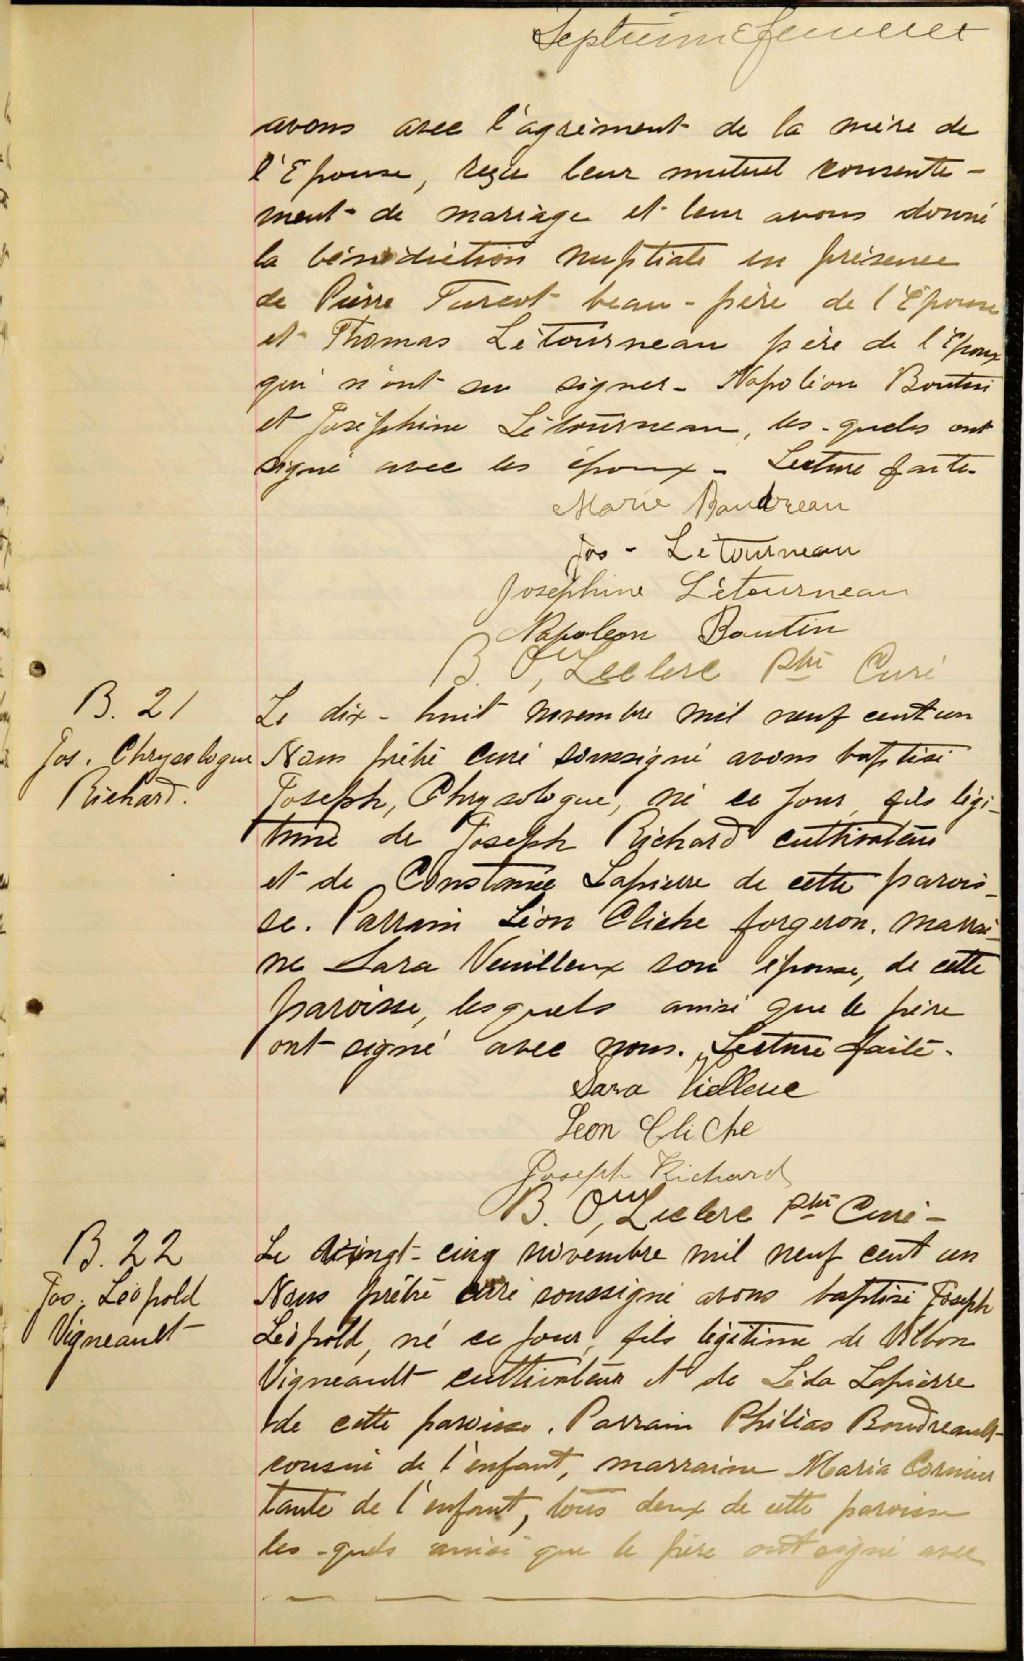 Septième feuillet
avons avec l'agrément de la mère de
l'Epouse, reçu leur mutuel consente-
ment de mariage et leur avons donné
la bénédiction nuptiale en présence
de Pierre Turcot beau-père de l'Epouse
et Thomas Létourneau père de l'Epoux
qui n'ont su signer - Napoléon Boutin
et Joséphine Létourneau, les-quels ont
signé avec les époux - Lecture faite.
Marie Baudreau
Jos - Létourneau
Josephine Létourneau
Napoleon Boutin
B. Our, Leclerc Ptre Curé
B. 21
Jos. Chrysologue
Richard.
Le dix-huit novembre mil neuf cent un
Nous prêtre curé soussigné avons baptisé
Joseph, Chrysologue, né ce jour, fils légi-
time de Joseph Richard cultivateur
et de Constance Lapierre de cette parois-
se. Parrain Léon Cliche forgeron. Marrai-
ne Sara Veuilleux son épouse, de cette
paroisse, lesquels ainsi que le père
ont signé avec nous. Lecture faite.
Sara Vielleue
Leon Cliche
Joseph Richard
B. Our, Leclerc Ptre Curé -
B. 22
Jos. Léopold
Vigneault
Le vingt-cinq novembre mil neuf cent un
Nous prêtre curé soussigné avons baptisé Joseph
Léopold, né ce jour, fils légitime de Wilbon
Vigneault cultivateur et de Léda Lapierre
de cette paroisse. Parrain Philias Boudreault
cousin de l'enfant, marraine Maria Cormier
tante de l'enfant, tous deux de cette paroisse
les-quels ainsi que le père ont signé avec